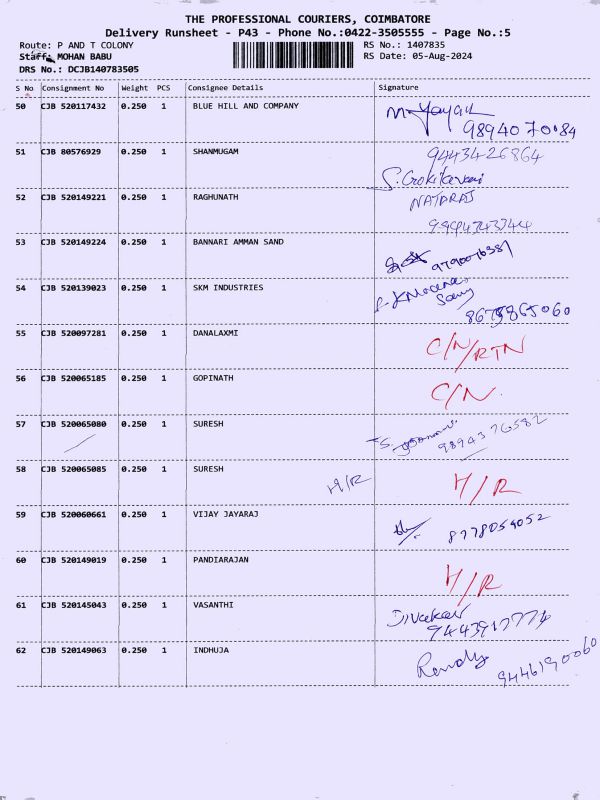 THE PROFESSIONAL COURIERS, COIMBATORE
Delivery Runsheet - P43 - Phone No.:0422-3505555 - Page No.:5
Route: P AND T COLONY
RS No.: 1407835
Staff: MOHAN BABU
RS Date: 05-Aug-2024
DRS No.: DCJB140783505
S No Consignment No Weight PCS Consignee Details Signature
50 CJB 520117432 0.250 1 BLUE HILL AND COMPANY
9894070184
51 CJB 80576929 0.250 1 SHANMUGAM 9443426864
52 CJB 520149221 0.250 1 RAGHUNATH NATARAJ
53 CJB 520149224 0.250 1 BANNARI AMMAN SAND
54 CJB 520139023 0.250 1 SKM INDUSTRIES
55 CJB 520097281 0.250 1 DANALAXMI C/N/RTN
56 CJB 520065185 0.250 1 GOPINATH C/N.
57 CJB 520065080 0.250 1 SURESH 9894376582
58 CJB 520065085 0.250 1 SURESH H/R H/R
59 CJB 520060661 0.250 1 VIJAY JAYARAJ 8778054052
60 CJB 520149019 0.250 1 PANDIARAJAN H/R
61 CJB 520145043 0.250 1 VASANTHI Divakar
62 CJB 520149063 0.250 1 INDHUJA 9446190060